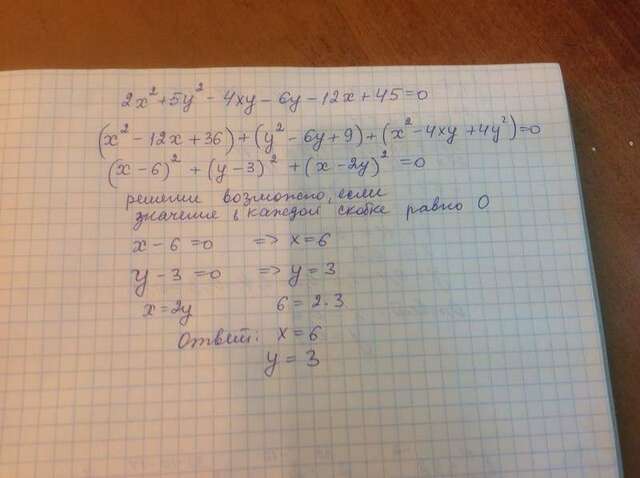 2x² + 5y² - 4xy - 6y - 12x + 45 = 0
(x² - 12x + 36) + (y² - 6y + 9) + (x² - 4xy + 4y²) = 0
(x - 6)² + (y - 3)² + (x - 2y)² = 0
решении возможно, если
значение в каждой скобке равно 0
x - 6 = 0 => x = 6
y - 3 = 0 => y = 3
x = 2y 6 = 2·3
Ответ: x = 6
y = 3